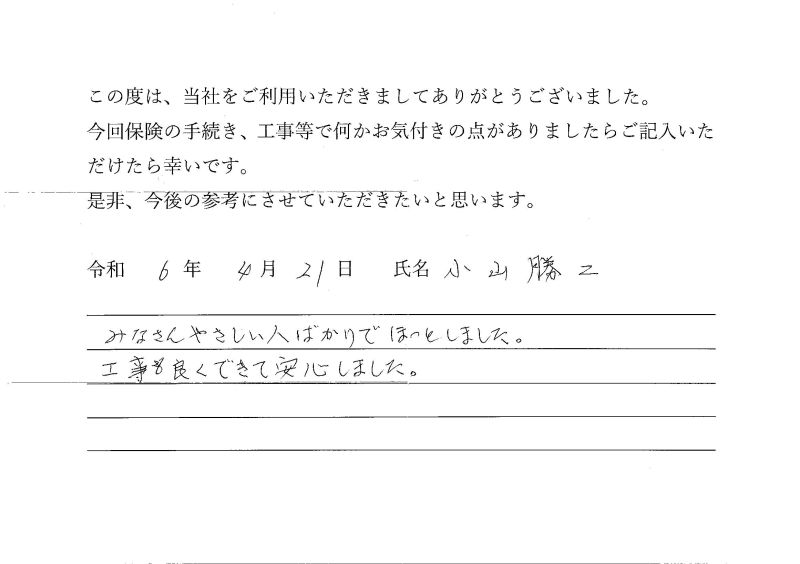 この度は、当社をご利用いただきましてありがとうございました。
今回保険の手続き、工事等で何かお気付きの点がありましたらご記入いた
だけたら幸いです。
是非、今後の参考にさせていただきたいと思います。
令和 6 年 4 月 21 日 氏名 小山 勝二
みなさんやさしい人ばかりでほっとしました。
工事も良くできて安心しました。